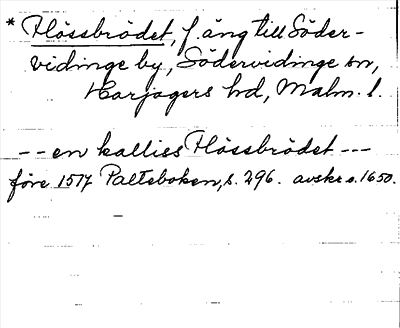 * Hössbrödet, f. äng till Söder-
vidinge by, Södervidinge sn,
Harjagers hd, Malm. l.
-- en kallies Hössbrödet ---
före 1517 Palteboken, s. 296. avskr. o. 1650.